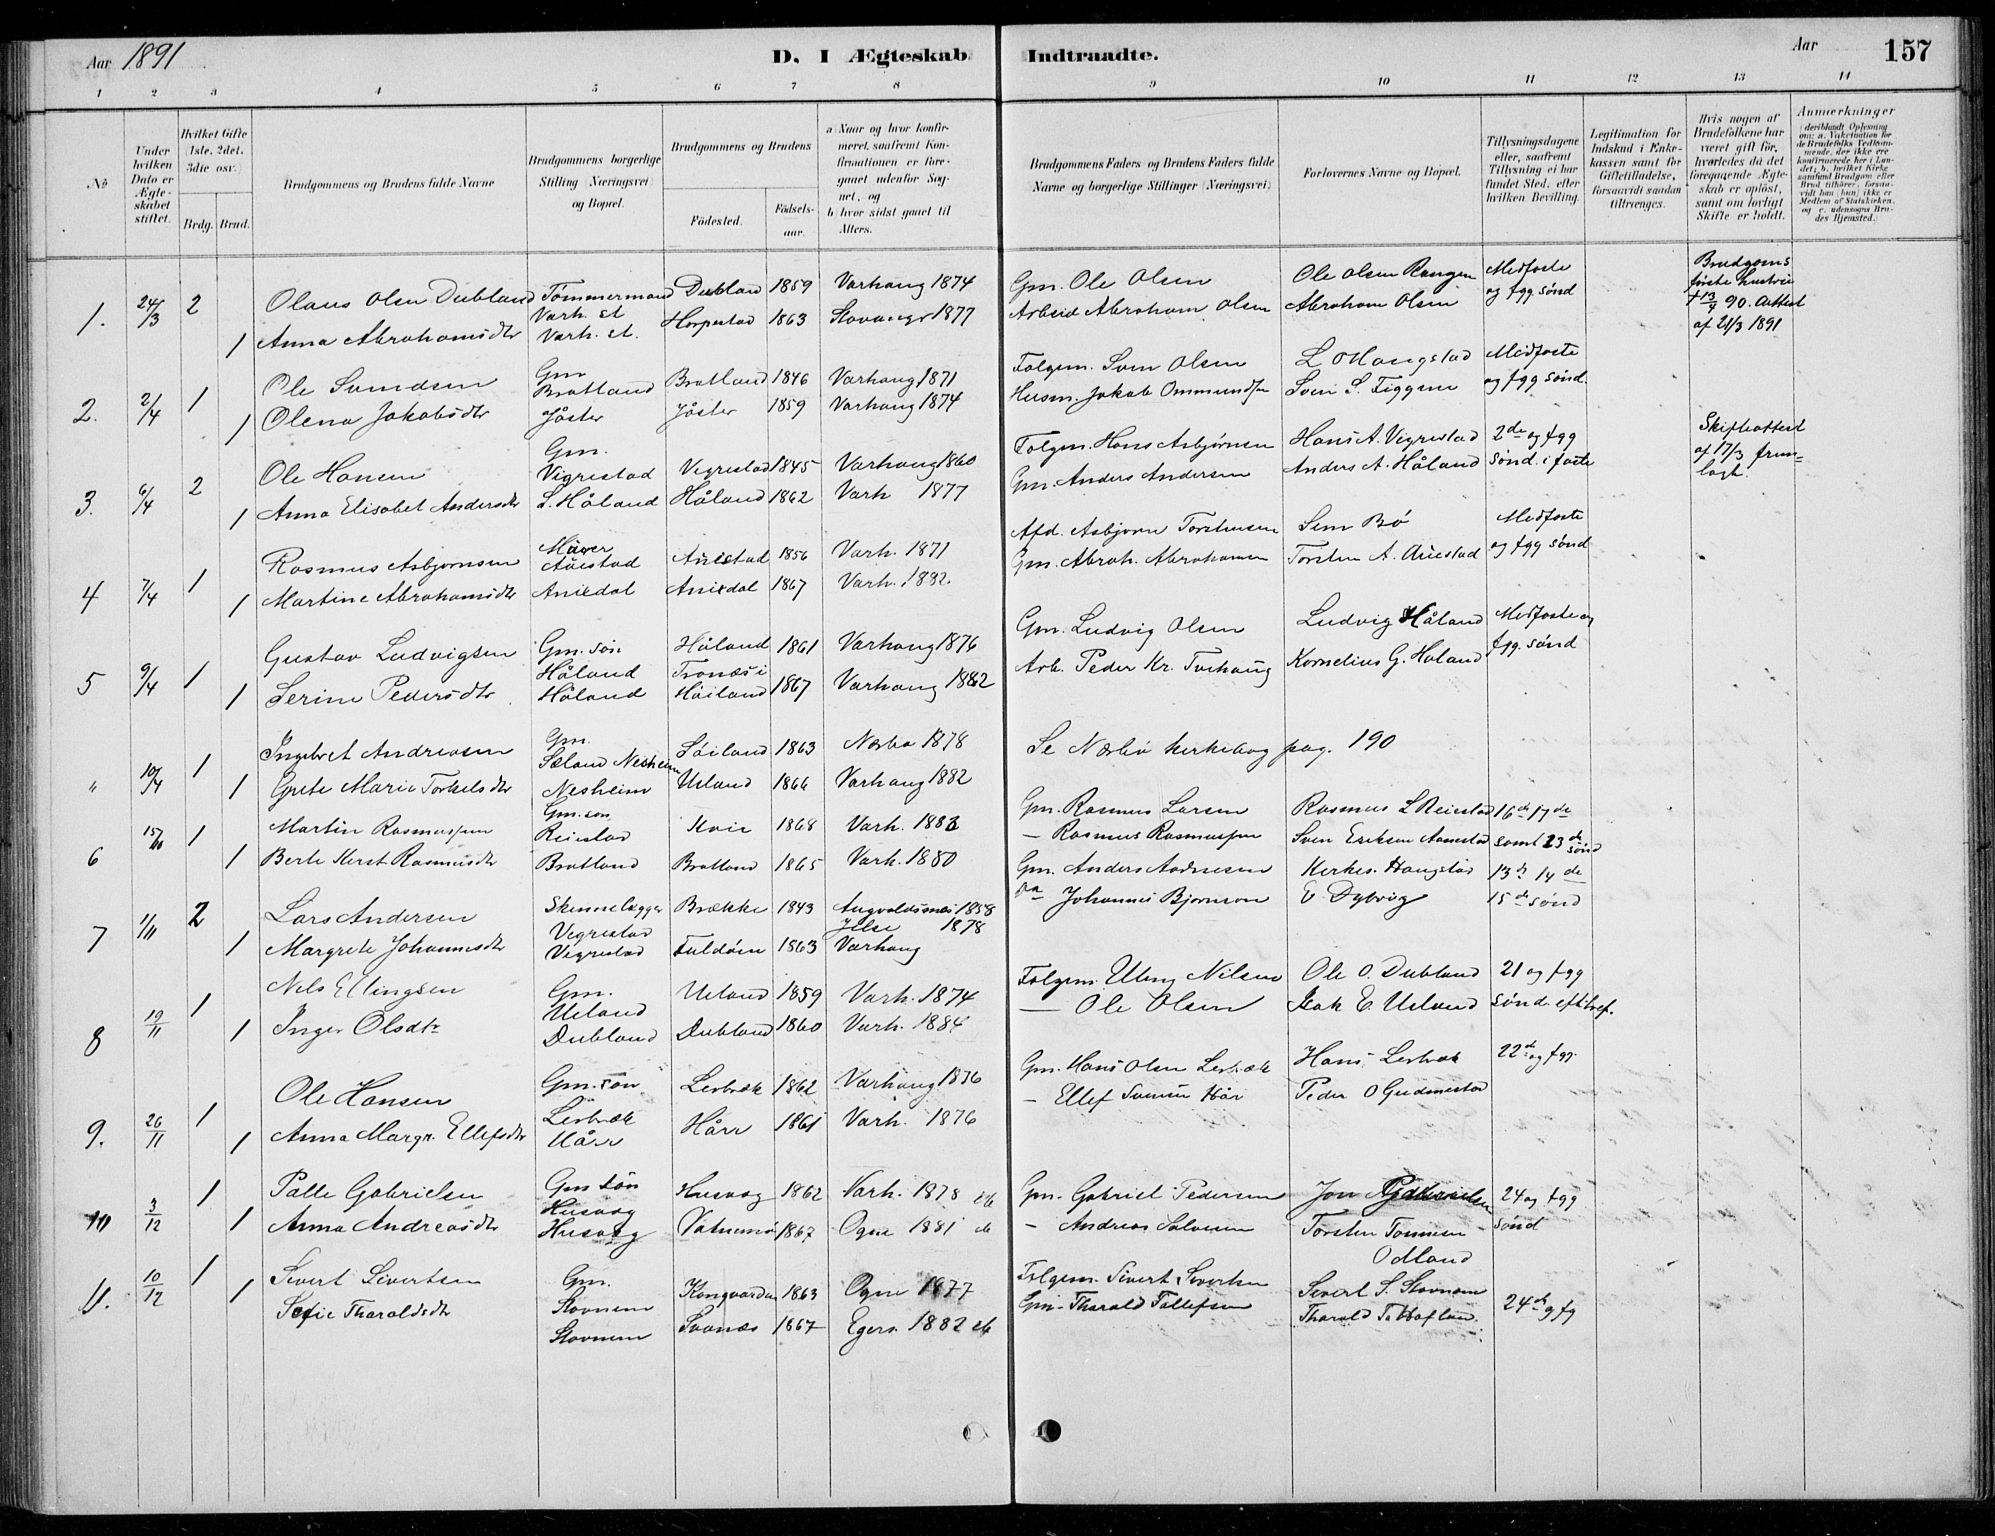 Aar 1891
D. I Ægteskab Indtraadte.
Aar
157
1 2 3 4 5 6 7 8 9 10 11 12 13 14
No
Under hvilken Dato er Ægteskabet stiftet.
Hvilket Gifte (1ste. 2det. 3die osv.)
Brdg. Brud.
Brudgommens og Brudens fulde Navne
Brudgommens borgerlige Stilling (Næringsvei) og Bopæl.
Brudgommens og Brudens
Födested.
Födselsaar.
a) Naar og hvor konfirmeret, saafremt Konfirmationen er foregaaet udenfor Sognet, og
b) hvor sidst gaaet til Alters.
Brudgommens Faders og Brudens Faders fulde Navne og borgerlige Stillinger (Næringsvei)
Forlovernes Navne og Bopæl.
Tillysningsdagene eller, saafremt Tillysning ei har fundet Sted, efter hvilken Bevilling.
Legitimation for Indskud i Enkekassen samt for Giftetilladelse, forsaavidt saadan tiltrænges.
Hvis nogen af Brudefolkene har været gift för, hvorledes da det foregaaende Ægteskab er oplöst, samt om lovligt Skifte er holdt.
Anmærkninger
1. 24/3 2 Olaus Olsen Dubland Tömmermand Varh. st Dubland 1859 Varhaug 1874 Gm. Ole Olsen Ole Olsen Rangen Midfaste og fgg sönd Brudgoms förste hustru 90. Attest af 21/3 1891
1 Anna Abrahamsdtr Varh. st. Horpestad 1863 Stavanger 1877 Arbeid Abraham Olsen Abraham Olsen
2. 2/4 1 Ole Svendsen Gm Bratland Bratland 1846 Varhaug 1871 Folgem. Sven Olsen L Haugstad Midfaste og fgg sönd.
1 Olena Jakobsdtr Jöster Jöster 1859 Varhaug 1874 Husm. Jakob Ommundsen Sven S. Tiggeren
3. 6/4 2 Ole Hansen Gm. Vigrestad Vigrestad 1845 Varhaug 1860 Folgem. Hans Asbjörnsen Hans A. Vigrestad 2de og fgg sönd. i faste Skifteattest af 17/3 fremlagt.
1 Anna Elisabet Andersdtr L. Håland Håland 1862 Varh 1877 Gm. Anders Andersen Anders A. Håland
4 7/4 1 Rasmus Asbjornsen Murer Auestad Auestad 1856 Varh. 1871 Afd. Asbjorn Torstensen Sem Bö Midfaste og fgg sönd
1 Martine Abrahamsdtr Aniksdal Aniksdal 1867 Varh. 1882. Gm. Abrah. Abrahamsen Torsten A. Auestad
5 9/4 1 Gustav Ludvigsen Gm. sön Håland Håland 1861 Varhaug 1876 Gm. Ludvig Olsen Ludvig Håland Midfaste og fgg. sönd
1 Serine Pedersdtr Håland Tronæs i Höiland 1867 Varhaug 1882 Arb. Peder Kr. Tverhaug Kornelius G. Håland
" 10/4 1 Ingebret Andreasen Gm. Sæland Nesheim Söiland 1863 Nærbø 1878 Se Nærbö kirkebog pag. 190
1 Grete Marie Torkelsdtr Nesheim Ueland 1866 Varhaug 1882
6 15/10 1 Martin Rasmussen Gm. sön Reiestad Kvie 1868 Varh. 1883 Gm. Rasmus Larsen Rasmus L Reiestad 16de 17de samt 23de sönd
1 Berte Kerst. Rasmusdtr Bratland Bratland 1865 Varh. 1880 – Rasmus Rasmussen Sven Eriksen Aanestad
7 1/11 2 Lars Andersen Skinnelægger Vigrestad Brække 1843 Augvaldsnes 1858 Gm. Anders Andersen Kirkes. Haugstad 13de 14de 15de sönd
1 Margrete Johannesdtr Vigrestad Fuldöen 1863 Jelse 1878 Varhaug Johannes Bjornson E Dybvig
8 19/11 1 Nils Ellingsen Gm. Ueland Ueland 1859 Varh. 1874 Folgem. Elling Nilsen Ole O. Dubland 21 og fgg sönd. eft. tref.
1 Inger Olsdtr Dubland Dubland 1860 Varh. 1884 — Ole Olsen Isak E. Ueland
9. 26/11 1 Ole Hansen Gm. sön Lerbræk Lerbræk 1862 Varhaug 1876 Gm. Hans Olsen Lerbræk Hans Lerbræk 22de og fgg.
1 Anna Margr. Ellefsdtr Hårr Hårr 1861 Varh. 1876 – Ellef Hår Peder O Gudmestad
10 3/12 1 Palle Gabrielsen Gm sön Husvåg Husvåg 1862 Varh. 1878 Gm. Gabriel Pedersen Jon Gabrielsen 24 og fgg sönd
1 Anna Andreasdtr Husvåg Vatnemo 1867 Ogne 1881 – Andreas Salvesen Torsten Tonnesen Odland
11. 10/12 1 Sivert Sivertsen Gm. Stovnem Kongevarden 1863 Ogne 1877 Folgem. Sivert Sivertsen Sivert S. Stovnem 24de og fg
1 Sofie Tharaldsdtr Stovnem Svanæs 1867 Egers. 1882 Gm. Tharald Tollefsen Tharald T. Hafland